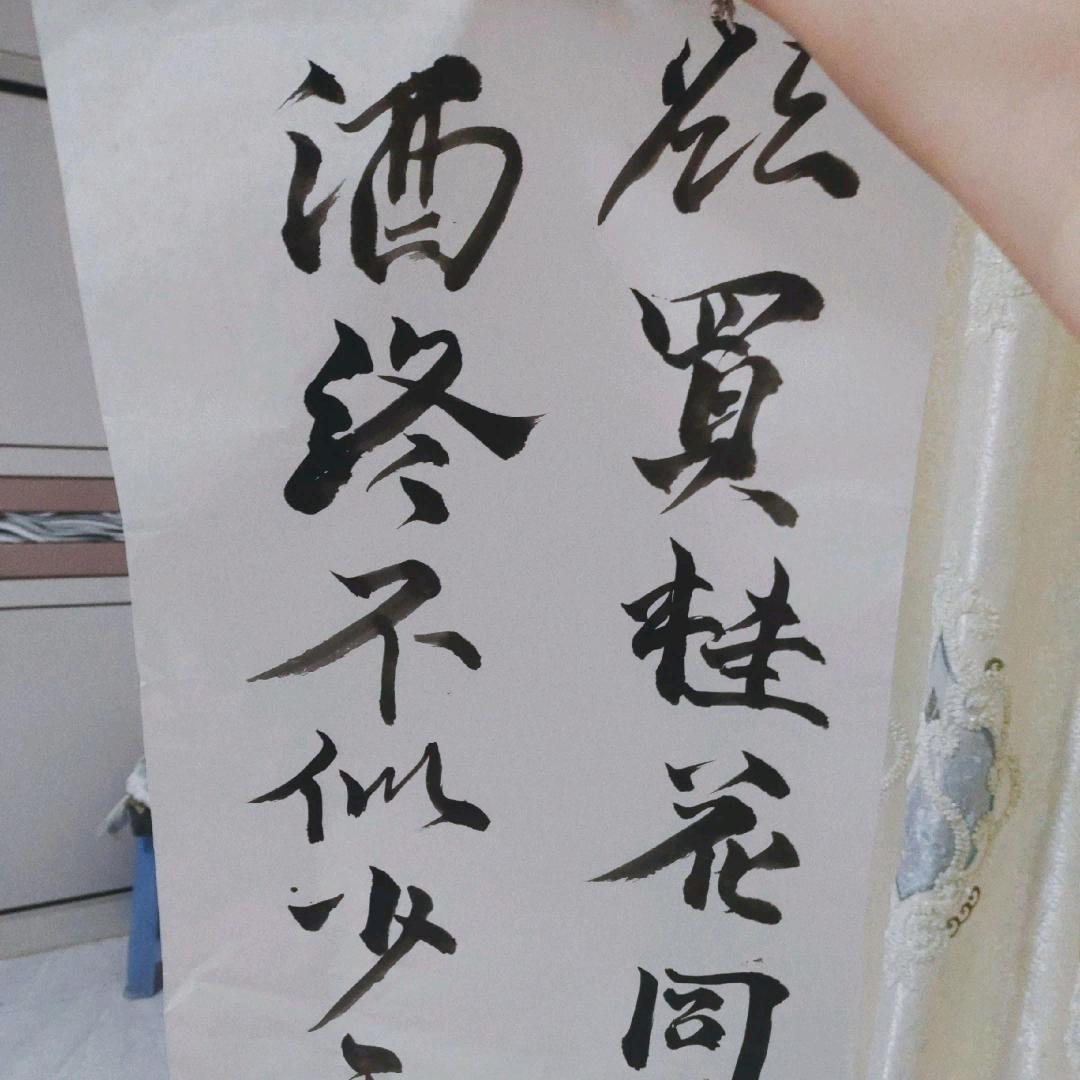 欲買桂花同
酒終不似少